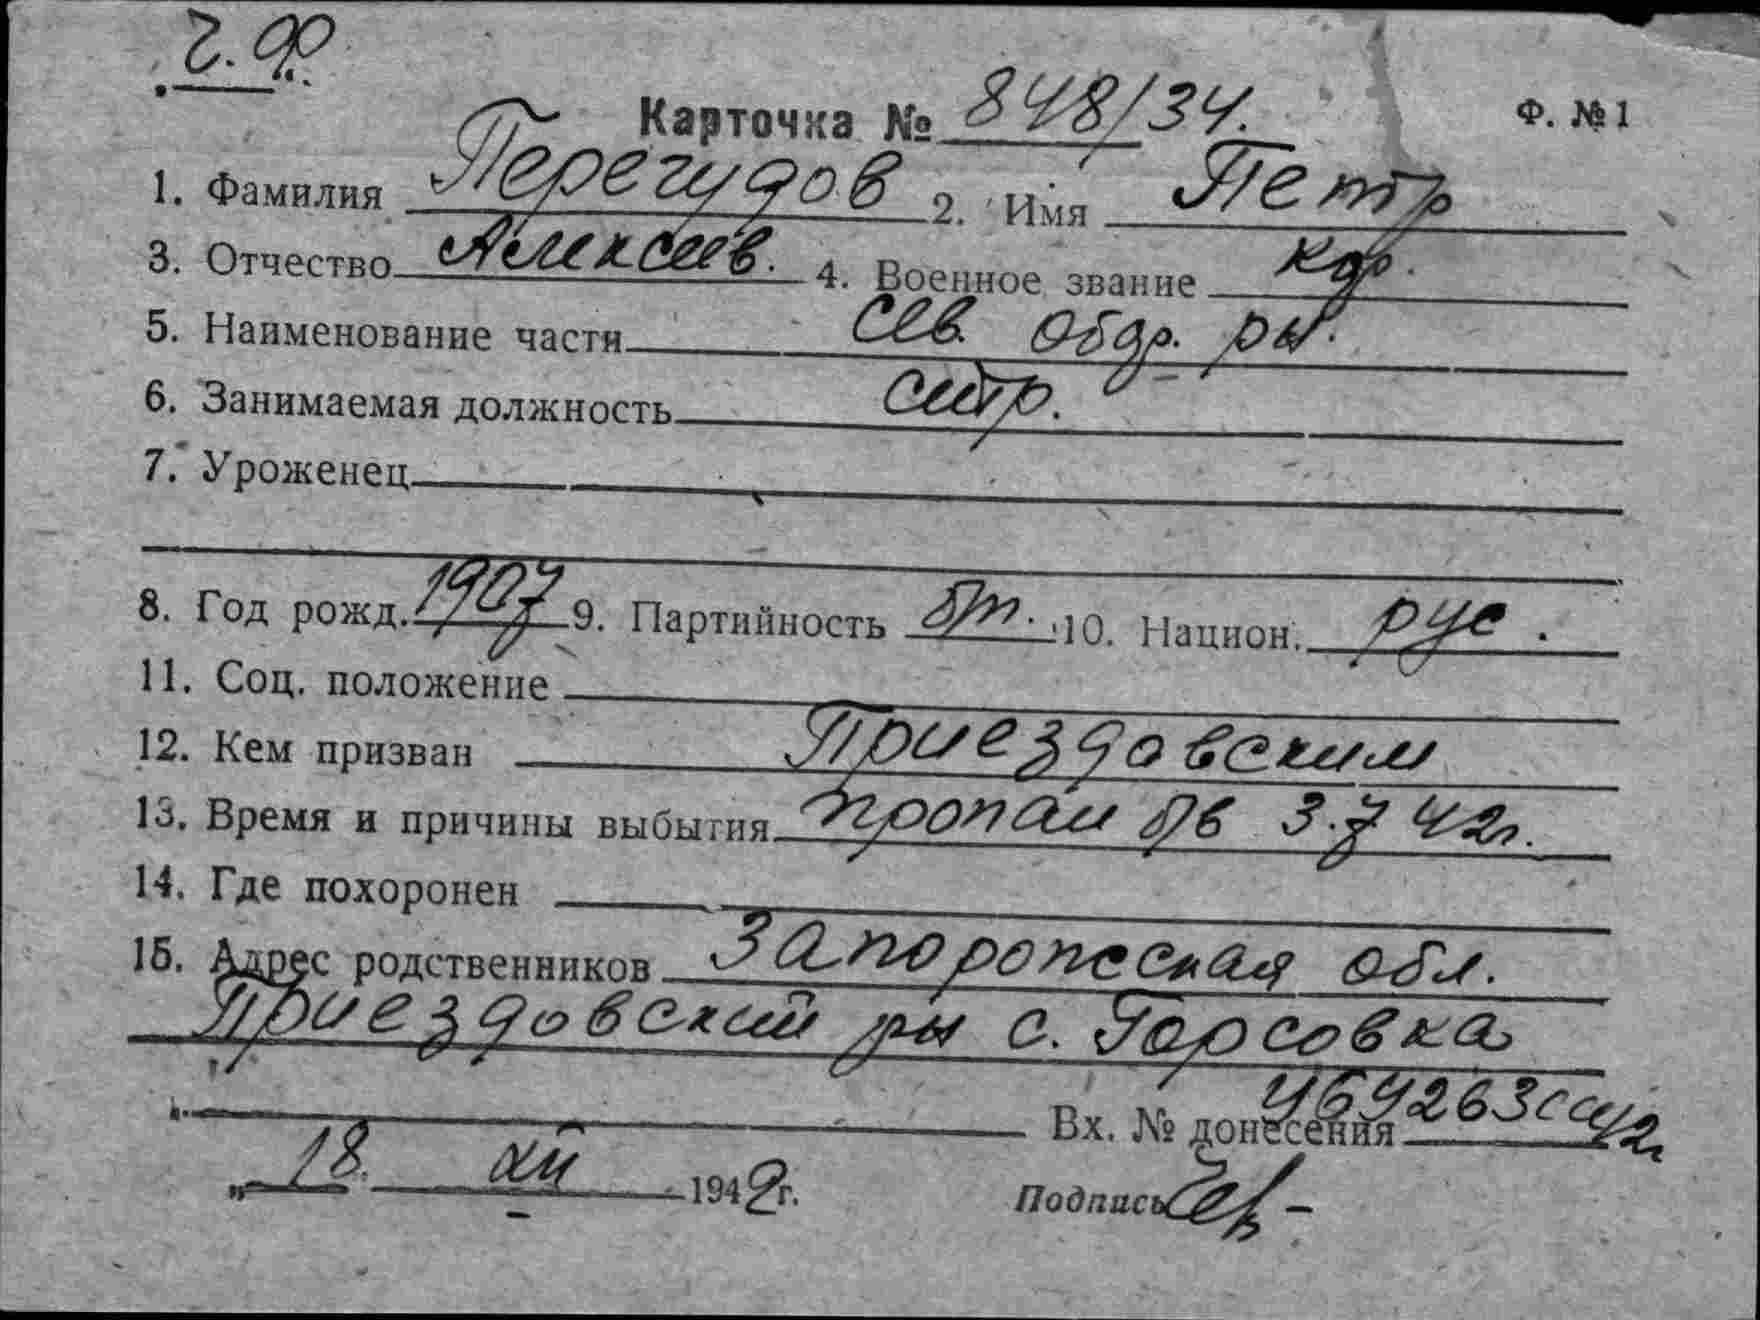 Ч.Ф.
Карточка № 848/34. Ф. №1
1. Фамилия Перегудов 2. Имя Петр
3. Отчество Алексеев. 4. Военное звание кдр.
5. Наименование части Сев. Обор. рн.
6. Занимаемая должность
7. Уроженец
8. Год рожд. 1907 9. Партийность б/п. 10. Национ. рус.
11. Соц. положение
12. Кем призван Приездовским
13. Время и причины выбытия пропал б/в 3.7 42г.
14. Где похоронен
15. Адрес родственников Запорожская обл.
Приездовский рн с. Горсовка
Вх. № донесения
„ 18. XII 1942г. Подпись